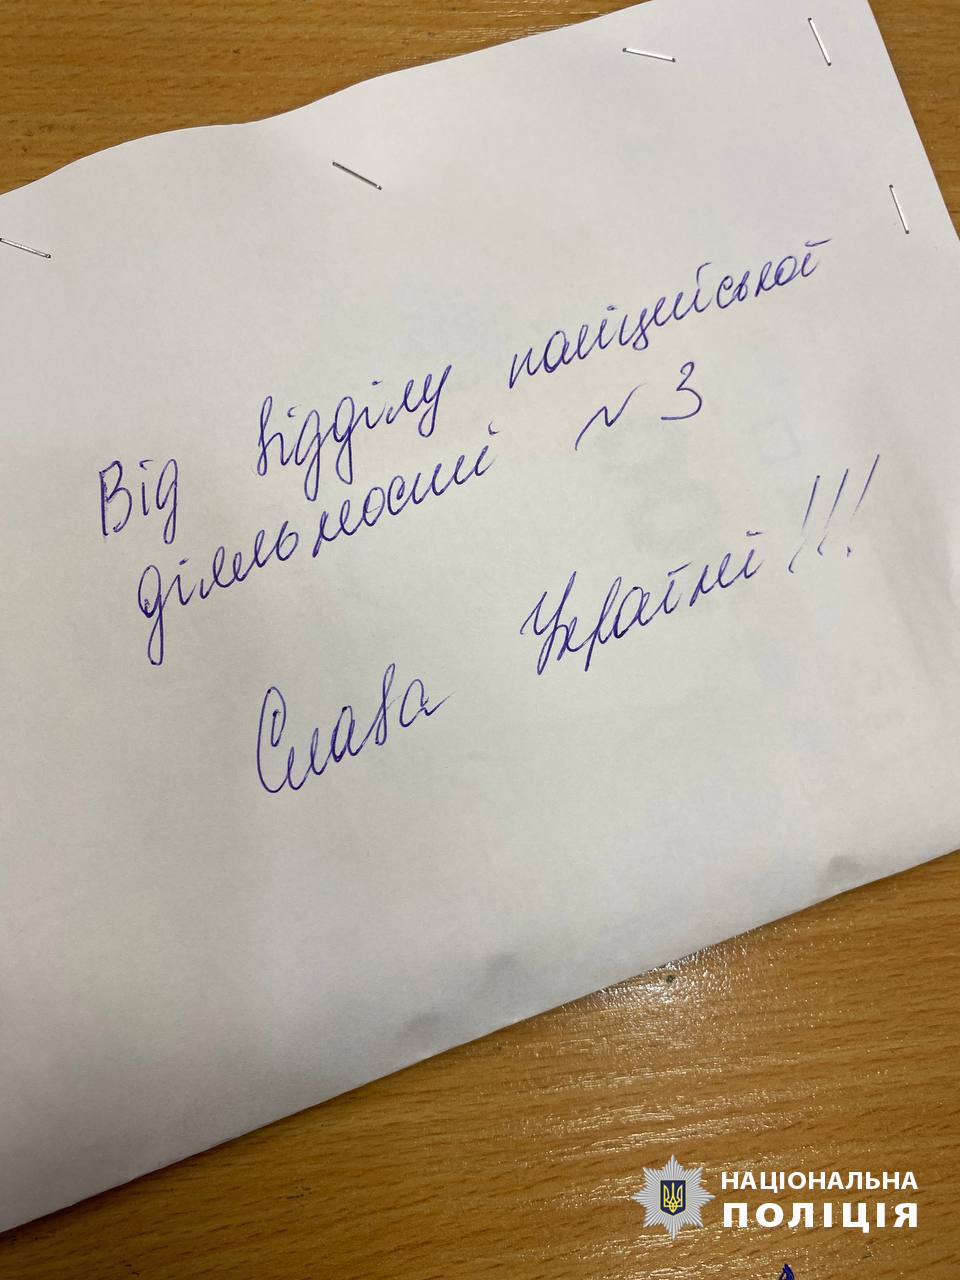 Від відділу поліцейської
діяльності № 3
Слава Україні!!!
НАЦІОНАЛЬНА
ПОЛІЦІЯ